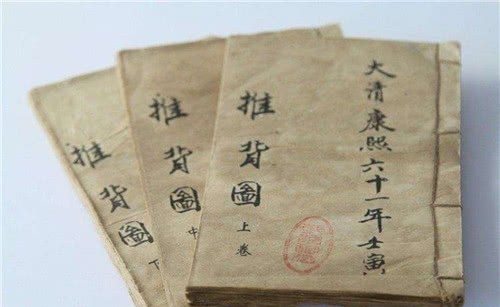 大清康熙六十一年壬寅
推背圖
上卷
推背圖
中
推背圖
下